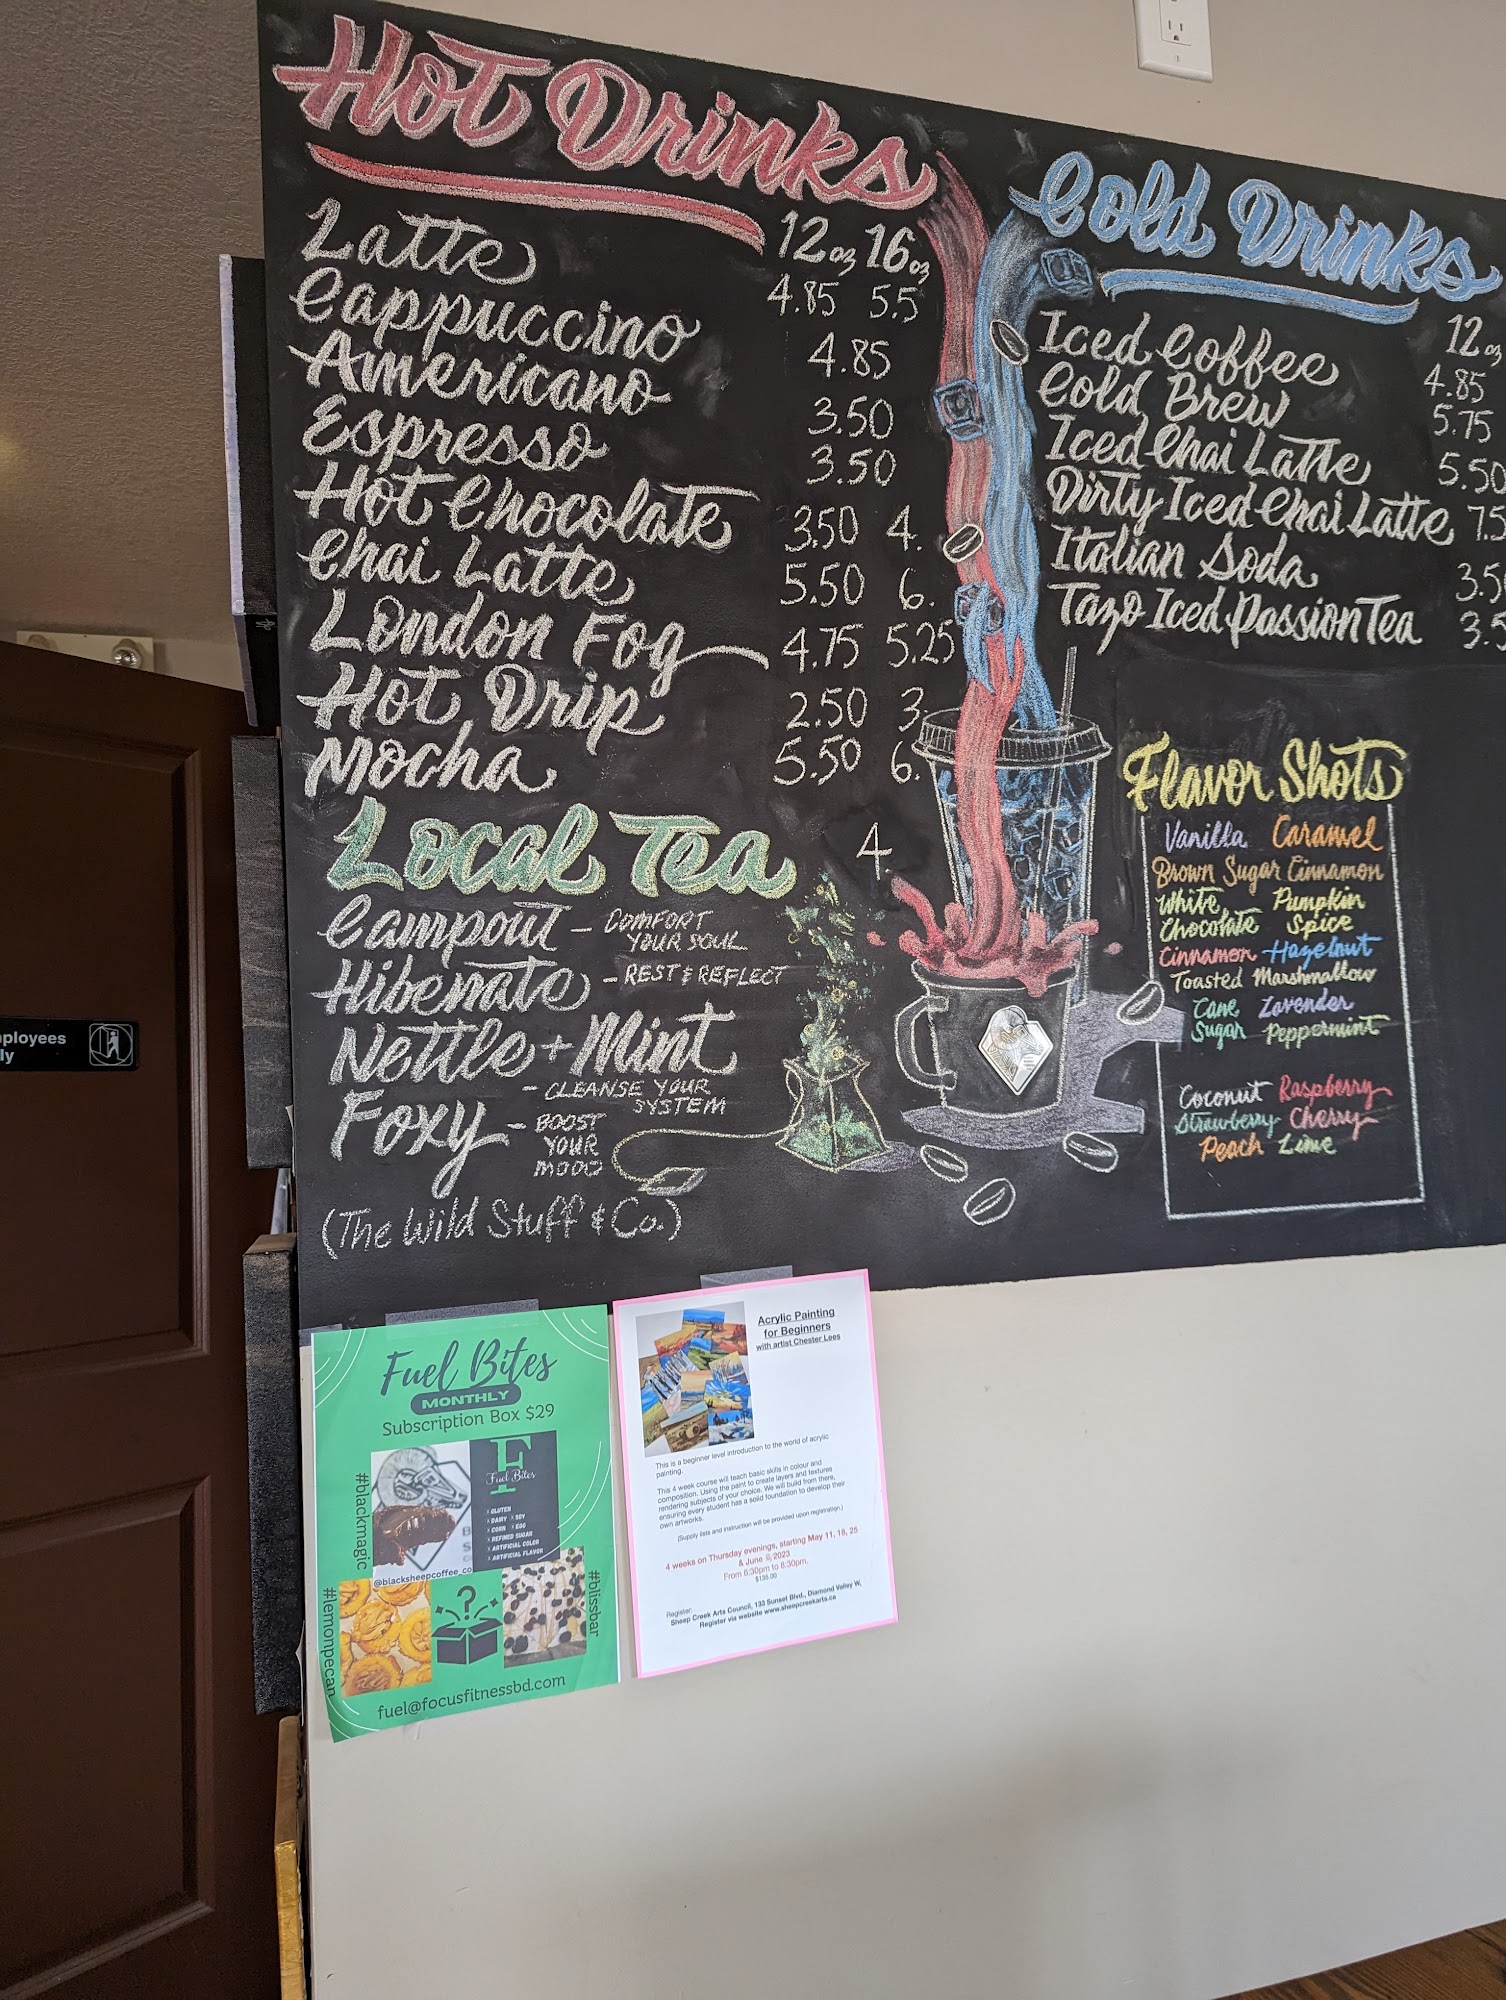 Hot Drinks
12oz 16oz
Latte 4.85 5.5
Cappuccino 4.85
Americano 3.50
Espresso 3.50
Hot Chocolate 3.50 4.
Chai Latte 5.50 6.
London Fog 4.75 5.25
Hot Drip 2.50 3.
Mocha 5.50 6.
Local Tea 4
Campout - COMFORT
YOUR SOUL
Hibernate - REST & REFLECT
Nettle + Mint
- CLEANSE YOUR
SYSTEM
Foxy - BOOST
YOUR
MOOD
(The Wild Stuff & Co.)
Cold Drinks
12oz
Iced Coffee 4.85
Cold Brew 5.75
Iced Chai Latte 5.50
Dirty Iced Chai Latte 7.5
Italian Soda 3.5
Tazo Iced Passion Tea 3.5
Flavor Shots
Vanilla Caramel
Brown Sugar Cinnamon
White Pumpkin
Chocolate Spice
Cinnamon Hazelnut
Toasted Marshmallow
Cane Lavender
Sugar Peppermint
Coconut Raspberry
Strawberry Cherry
Peach Lime
ployees
ly
Fuel Bites
MONTHLY
Subscription Box $29
#blackmagic
F
Fuel Bites
X GLUTEN
X DAIRY X SOY
X CORN X EGG
X REFINED SUGAR
X ARTIFICIAL COLOR
X ARTIFICIAL FLAVOR
@blacksheepcoffee_co
#lemonpecan
?
#blissbar
fuel@focusfitnessbd.com
Acrylic Painting
for Beginners
with artist Chester Lees
This is a beginner level introduction to the world of acrylic
painting.
This 4 week course will teach basic skills in colour and
composition. Using the paint to create layers and textures
rendering subjects of your choice. We will build from there,
ensuring every student has a solid foundation to develop their
own artworks.
(Supply lists and instruction will be provided upon registration.)
4 weeks on Thursday evenings, starting May 11, 18, 25
& June 8, 2023
From 6:30pm to 8:30pm.
$135.00
Register:
Sheep Creek Arts Council, 133 Sunset Blvd., Diamond Valley W,
Register via website www.sheepcreekarts.ca